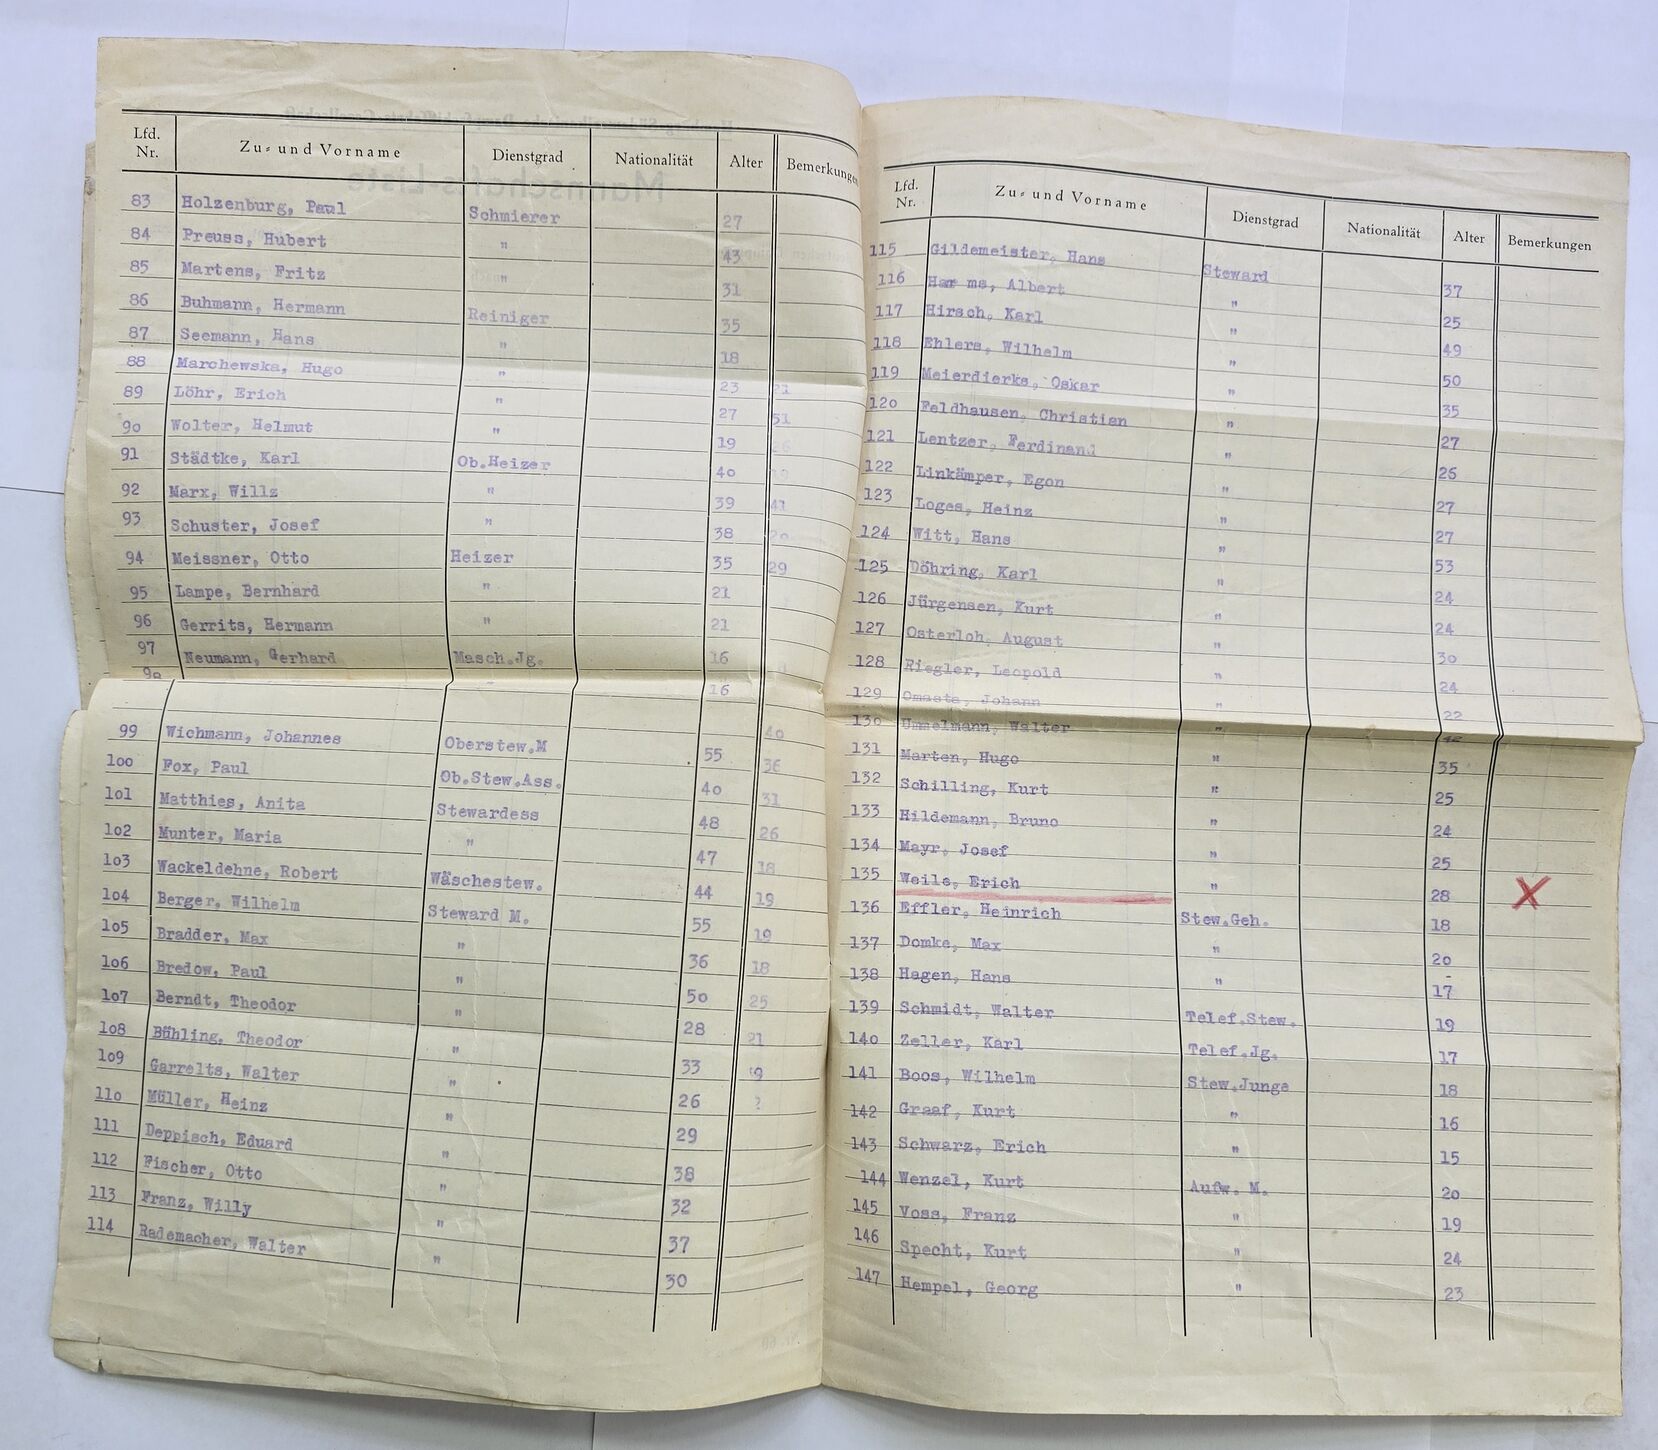 Lfd. Nr. Zu= und Vorname Dienstgrad Nationalität Alter Bemerkungen
83 Holzenburg, Paul Schmierer 27
84 Preuss, Hubert " 43
85 Martens, Fritz " 31
86 Buhmann, Hermann Reiniger 35
87 Seemann, Hans " 18
88 Marchewska, Hugo " 23
89 Löhr, Erich " 27
90 Wolter, Helmut " 19
91 Städtke, Karl Ob.Heizer 40
92 Marx, Willz " 39
93 Schuster, Josef " 38
94 Meissner, Otto Heizer 35
95 Lampe, Bernhard " 21
96 Gerrits, Hermann " 21
97 Neumann, Gerhard Masch.Jg. 16
16
99 Wichmann, Johannes Oberstew.M 55
loo Fox, Paul Ob.Stew.Ass. 4o
lol Matthies, Anita Stewardess 48
lo2 Munter, Maria " 47
lo3 Wackeldehne, Robert Wäschestew. 44
lo4 Berger, Wilhelm Steward M. 55
lo5 Bradder, Max " 36
lo6 Bredow, Paul " 5o
lo7 Berndt, Theodor " 28
lo8 Bühling, Theodor " 33
lo9 Garrelts, Walter " 26
llo Müller, Heinz " 29
111 Deppisch, Eduard " 38
112 Fischer, Otto " 32
113 Franz, Willy " 37
114 Rademacher, Walter " 3o
Lfd. Nr. Zu= und Vorname Dienstgrad Nationalität Alter Bemerkungen
115 Gildemeister, Hans Steward 37
116 Har ms, Albert " 25
117 Hirsch, Karl " 49
118 Ehlers, Wilhelm " 5o
119 Meierdierks, Oskar " 35
12o Feldhausen, Christian " 27
121 Lentzer, Ferdinand " 26
122 Linkämper, Egon " 27
123 Loges, Heinz " 27
124 Witt, Hans " 53
125 Döhring, Karl " 24
126 Jürgensen, Kurt " 24
127 Osterloh, August " 3o
128 Riegler, Leopold " 24
129 Omasta, Johann " 22
13o Ummelmann, Walter "
131 Marten, Hugo " 35
132 Schilling, Kurt " 25
133 Hildemann, Bruno " 24
134 Mayr, Josef " 25
135 Weile, Erich " 28 X
136 Effler, Heinrich Stew.Geh. 18
137 Domke, Max " 2o
138 Hagen, Hans " 17
139 Schmidt, Walter Telef.Stew. 19
14o Zeller, Karl Telef.Jg. 17
141 Boos, Wilhelm Stew.Junge 18
142 Graaf, Kurt " 16
143 Schwarz, Erich " 15
144 Wenzel, Kurt Aufw. M. 2o
145 Voss, Franz " 19
146 Specht, Kurt " 24
147 Hempel, Georg " 23